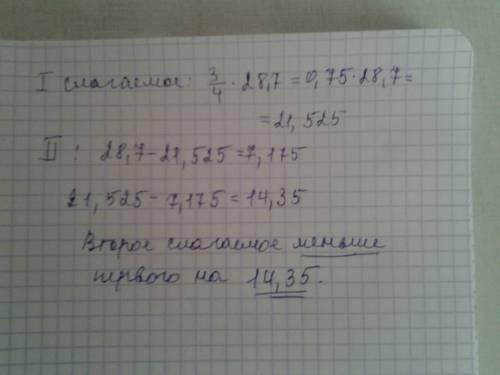 I слагаемое: 3/4 · 28,7 = 0,75 · 28,7 =
= 21,525
II : 28,7 - 21,525 = 7,175
21,525 - 7,175 = 14,35
Второе слагаемое меньше
первого на 14,35.